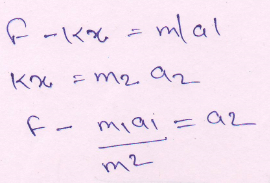 F - kx = m1a1
kx = m2 a2
F - m1a1/m2 = a2